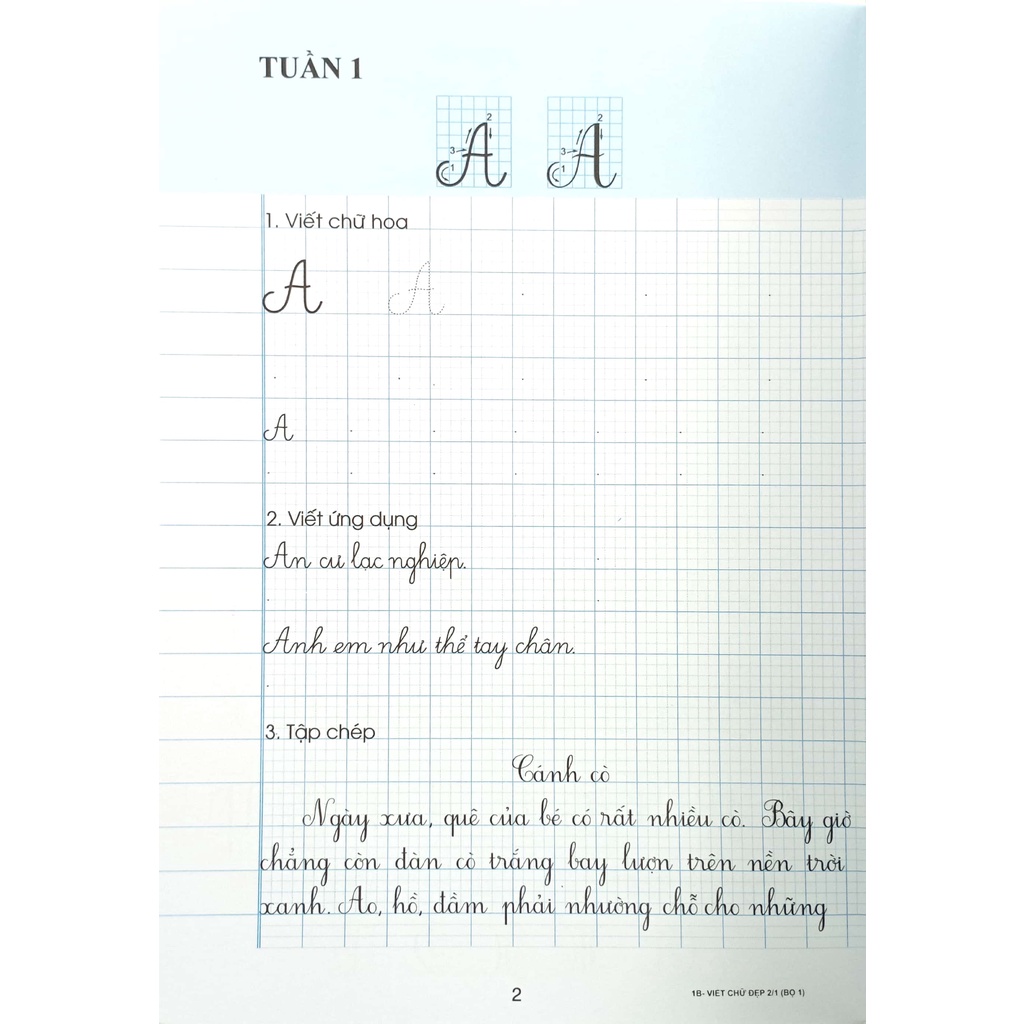 TUẦN 1
2 2
3 3
1 1
A A
1. Viết chữ hoa
A A
A
2. Viết ứng dụng
An cư lạc nghiệp.
Anh em như thể tay chân.
3. Tập chép
Cánh cò
Ngày xưa, quê của bé có rất nhiều cò. Bây giờ
chẳng còn đàn cò trắng bay lượn trên nền trời
xanh. Ao, hồ, đầm phải nhường chỗ cho những
2
1B- VIET CHỮ ĐẸP 2/1 (BỌ 1)